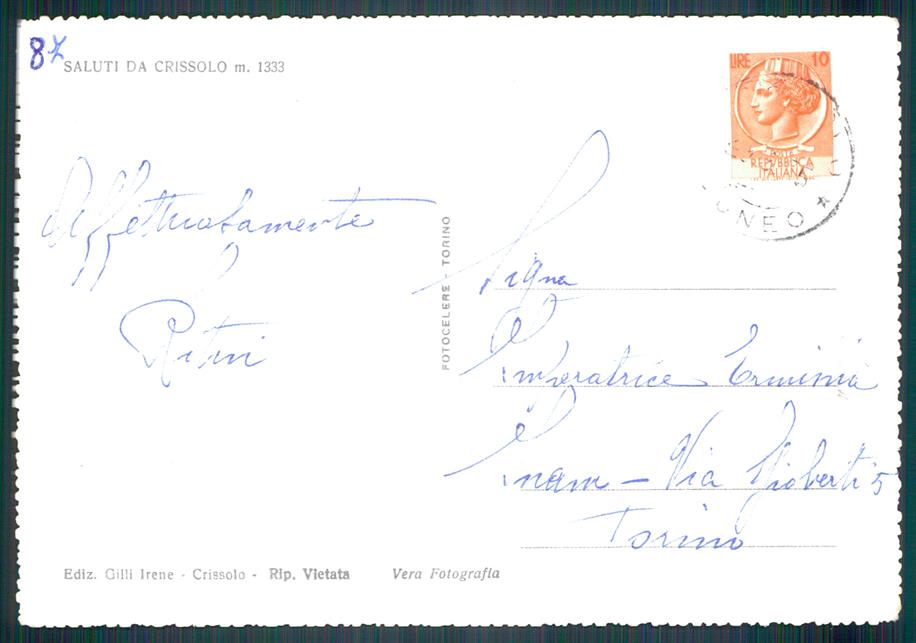 87
SALUTI DA CRISSOLO m. 1333
LIRE 10
POSTE
REPUBBLICA
ITALIANA
CUNEO
Affettuosamente
FOTOCELERE - TORINO
Sigra
Imperatrice Erminia
Inam - Via Gioberti 5
Torino
Ediz. Gilli Irene - Crissolo - Rip. Vietata
Vera Fotografia